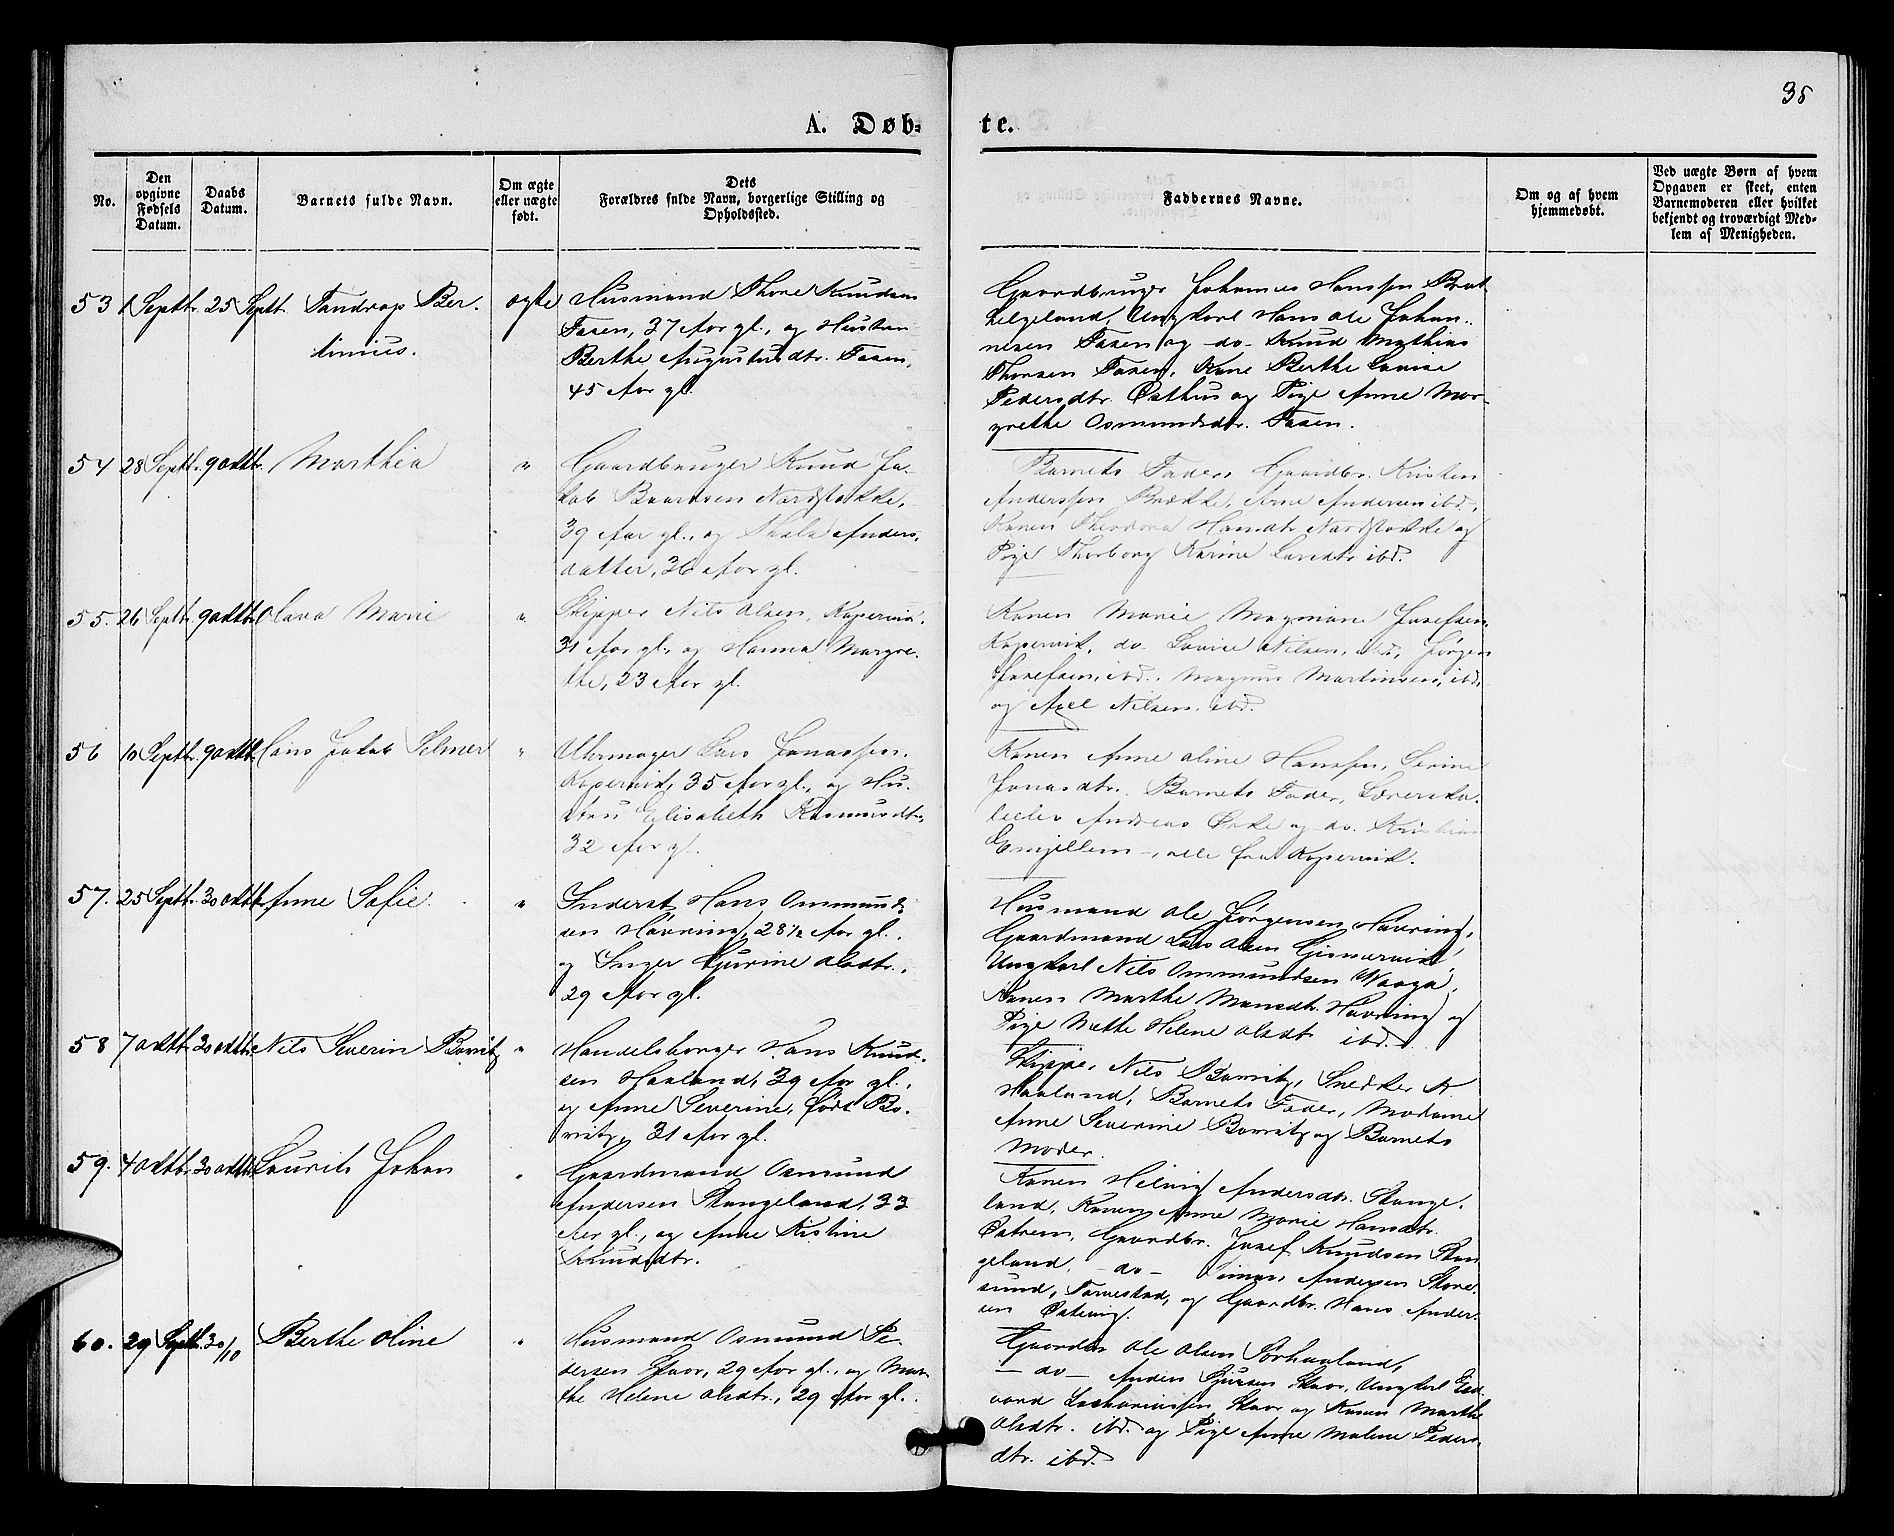 35
A. Døb-
te.
No.
Den
opgivne
Fødsels
Datum.
Daabs
Datum.
Barnets fulde Navn.
Om ægte
eller uægte
født.
Dets
Forældres fulde Navn, borgerlige Stilling og
Opholdssted.
Faddernes Navne.
Om og af hvem
hjemmedøbt.
Ved uægte Børn af hvem
Opgaven er skeet, enten
Barnemoderen eller hvilket
bekjendt og troværdigt Med-
lem af Menigheden.
53 1 Septbr. 25 Septbr. Tandrup Ber-
tinius.
ægte
Husmand Thore Knudsen
Fasen, 37 Aar gl., og Hustru
Berthe Augustinsdtr. Fasen,
45 Aar gl.
Gaardbruger Johannes Hanssen Brat-
helgeland, Ungkarl Hans Ole Johan-
nesen Fasen og do- Knud Mathias
Thorsen Fasen, Kone Berthe Lovise
Pedersdtr. Østhus og Pige Anne Mar-
grethe Osmundsdtr. Fasen.
54 28 Septbr. 9 Octbr. Marthea "
Gaardbruger Knud Ja-
kob Baardsen Nordstokke,
39 Aar gl., og Anders-
datter, 36 Aar gl.
Barnets Fader, Gaardbr. Kristen
Anderssen Brekke, Arne Andersen ibd.,
Konen Theodora Hansdtr. Nordstokke og
Pige Thorborg Karine Larsdtr. ibd.
55. 26 Septbr. 9 Octbr. Olava Marie "
Skipper Nils Olsen, Kopervik,
31 Aar gl., og Hanna Margre-
the, 23 Aar gl.
Konen Marie Magrinane Josefsen,
Kopervik, do- Lovise Nilsen, ibd., Jørgen
Josefsen, ibd., Magnus Martinsen, ibd.,
og Axel Nilsen, ibd.
56 10 Septbr. 9 Octbr. Lars Jakob Selmer "
Uhrmager Lars Jonassen,
Kopervik, 35 Aar gl., og Hu-
stru Elisabeth Rasmusdtr.,
32 Aar gl.
Konen Anne Oline Hanssen, Serine
Jonasdtr., Barnets Fader, Lærersko-
leelev Andreas Ørke og do. Kristian
Emjellem, alle fra Kopervik.
57. 25 Septbr. 30 Octbr. Anne Sofie. "
Inderst Hans Ommund-
sen Høvring, 28 1/2 Aar gl.,
og Inger Gurine Olsdtr.,
29 Aar gl.
Husmand Ole Jørgensen Høvring,
Gaardmand Lars Olsen Gismervik,
Ungkarl Nils Ommundsen Vaaga,
Konen Marthe Monsdtr. Høvring og
Pige Mette Helene Olsdtr. ibd.
58 7 Octbr. 30 Octbr. Nils Severin Borvitz "
Handelsborger Hans Knud-
sen Haaland, 39 Aar gl.,
og Anne Severine, født Bo-
rvitz, 31 Aar gl.
Skipper Nils Borvitz, Snekker K.
Haaland, Barnets Fader, Madame
Anne Severine Borvitz og Barnets
Moder.
59. 4 Octbr. 30 Octbr. Laurits Johan "
Gaardmand Osmund
Andersen Stangeland, 33
Aar gl., og Anne Kistine
Knudsdtr.
Konen Helvig Andersdtr. Stange-
land, Konen Anne Marie Hansdtr.
Østrem, Gaardbr. Josef Knudsen Stan-
geland, - do - Simon Andersen Store-
sund, Torvestad, og Gaardbr. Hans Ander-
sen
60. 29 Septbr. 30/10 Berthe Oline "
Husmand Osmund Pe-
dersen Skaar, 29 Aar gl., og Mar-
the Helene Olsdtr., 29 Aar gl.
Gaardbr. Ole Olsen Sørhaaland,
- do - Anders Sjursen Skaar, Ungkarl Ed-
vard Zachariassen Skaar og Konen Marthe
Olsdtr. ibd. og Pige Anne Malene Peders-
dtr. ibd.